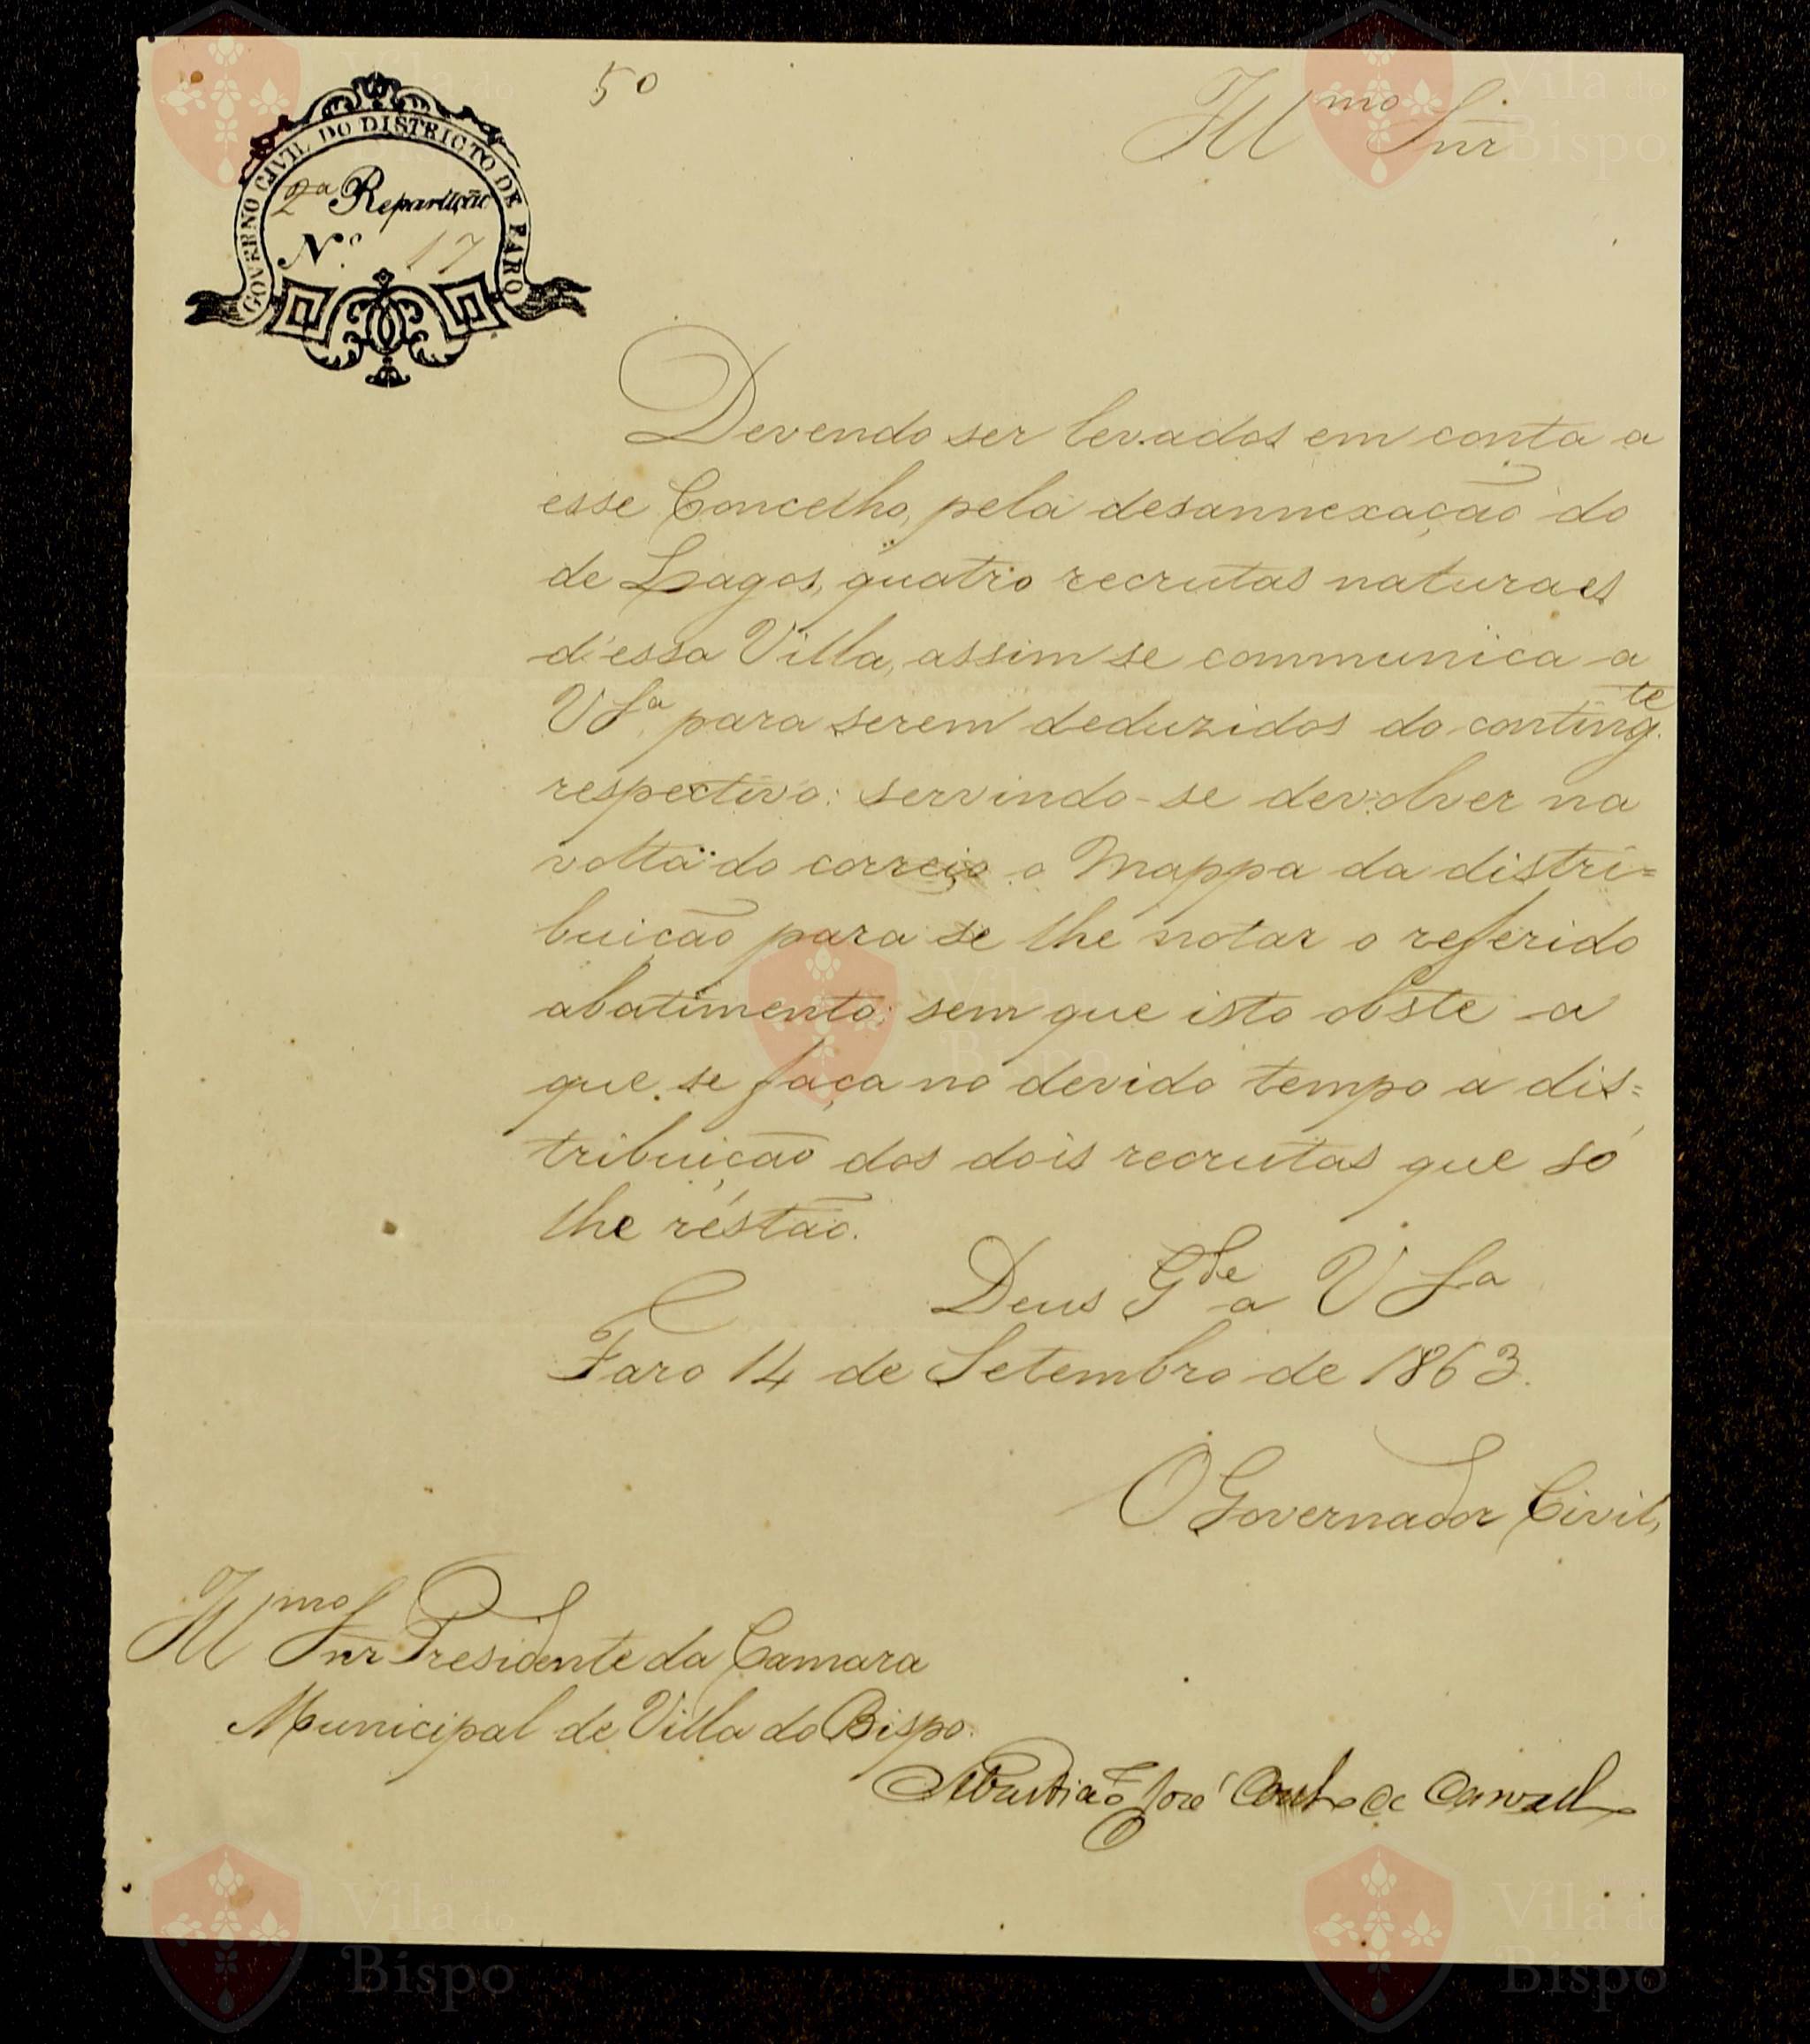 50
Illmo Snr
GOVERNO CIVIL DO DISTRICTO DE FARO
2a Repartição
N.o 17
Devendo ser levados em conta a
esse Concelho, pela desannexação do
de Lagos, quatro recrutas naturaes
d'essa Villa, assim se communica a
V Sa para serem deduzidos do contingte
respectivo: servindo-se devolver na
volta do correio o Mappa da distri=
buição para se lhe notar o referido
abatimento; sem que isto obste a
que se faça no devido tempo a dis=
tribuição dos dois recrutas que só
lhe réstão.
Deus Gde a V Sa
Faro 14 de Setembro de 1863.
O Governador Civil,
Illmo Snr Presidente da Camara
Municipal de Villa do Bispo.
Sebastião José Coelho de Carvalho
Vila do
Bispo